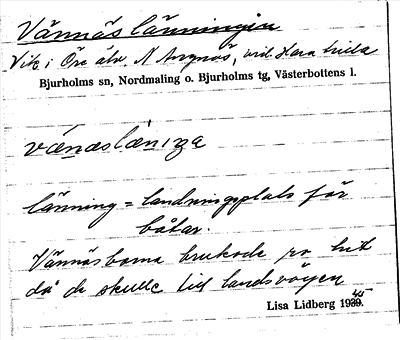 Vännäslänningen
Vik i Öre älv N Angnäs, vid
Bjurholms sn, Nordmaling o. Bjurholms tg, Västerbottens l.
länning = landningsplats för
båtar.
Vännäsborna brukade ro hit
då de skulle till landsvägen
Lisa Lidberg 1945